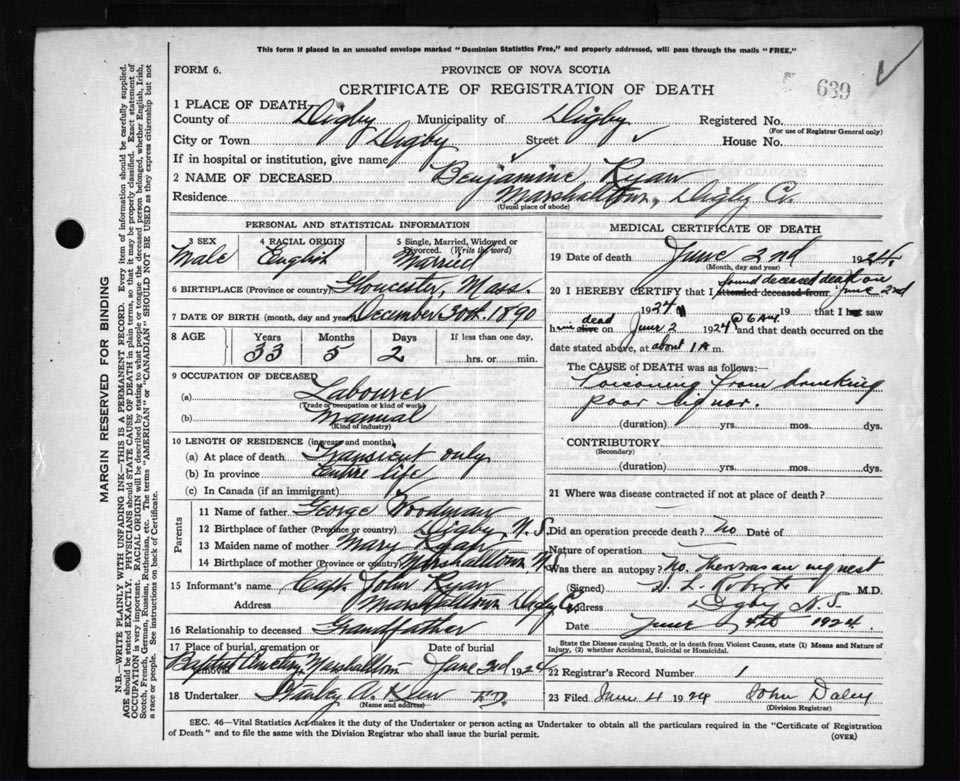 This form if placed in an unsealed envelope marked "Dominion Statistics Free," and properly addressed, will pass through the mails "FREE."
FORM 6.
PROVINCE OF NOVA SCOTIA
639
CERTIFICATE OF REGISTRATION OF DEATH
1 PLACE OF DEATH
County of Digby Municipality of Digby Registered No.
(For use of Registrar General only)
City or Town Digby Street House No.
If in hospital or institution, give name
2 NAME OF DECEASED Benjamine Ryan
Residence Marshalltown, Digby Co.
(Usual place of abode)
PERSONAL AND STATISTICAL INFORMATION
3 SEX Male
4 RACIAL ORIGIN English
5 Single, Married, Widowed or Divorced. (Write the word) Married
6 BIRTHPLACE (Province or country) Gloucester, Mass.
7 DATE OF BIRTH (month, day and year) December 30th 1890
8 AGE Years 33 Months 5 Days 2 If less than one day, hrs. or min.
9 OCCUPATION OF DECEASED
(a) Labourer
(Trade or occupation or kind of work)
(b) Manual
(Kind of industry)
10 LENGTH OF RESIDENCE (in years and months)
(a) At place of death Transient only
(b) In province Entire life
(c) In Canada (if an immigrant)
Parents
11 Name of father George Woodman
12 Birthplace of father (Province or country) Digby, N.S.
13 Maiden name of mother Mary Ryan
14 Birthplace of mother (Province or country) Marshalltown, N.
15 Informant's name Capt. John Ryan
Address Marshalltown Digby Co.
16 Relationship to deceased Grandfather
17 Place of burial, cremation or removal Date of burial
Baptist Cemetery Marshalltown June 2nd 1924
18 Undertaker Stanley A.
(Name and address)
MEDICAL CERTIFICATE OF DEATH
19 Date of death June 2nd 1924
(Month, day and year)
20 I HEREBY CERTIFY that I attended deceased from found deceased dead on June 2nd
1924 19 that I last saw
him alive dead on June 2 1924 @ 6 A.M. and that death occurred on
date stated above, at about 1 A m.
The CAUSE of DEATH was as follows:—
Poisoning from drinking
poor liquor.
(duration) yrs. mos. dys.
CONTRIBUTORY
(Secondary)
(duration) yrs. mos. dys.
21 Where was disease contracted if not at place of death?
Did an operation precede death? No Date of
Nature of operation
Was there an autopsy? No. There was an inquest
(Signed) M.D.
Address Digby N.S.
Date June 4th 1924.
State the Disease causing Death, or in death from Violent Causes, state (1) Means and Nature of Injury, (2) whether Accidental, Suicidal or Homicidal.
22 Registrar's Record Number 1
23 Filed June 4 1924 John Daley
(Division Registrar)
SEC. 46—Vital Statistics Act makes it the duty of the Undertaker or person acting as Undertaker to obtain all the particulars required in the "Certificate of Registration of Death" and to file the same with the Division Registrar who shall issue the burial permit.
(OVER)
MARGIN RESERVED FOR BINDING
N.B.—WRITE PLAINLY WITH UNFADING INK—THIS IS A PERMANENT RECORD. Every item of information should be carefully supplied.
AGE should be stated EXACTLY. PHYSICIANS should STATE CAUSE OF DEATH in plain terms, so that it may be properly classified. Exact statement of
OCCUPATION is very important. RACIAL ORIGIN will be described by stating to what people or tongue the deceased person belonged, whether English, Irish,
Scotch, French, German, Russian, Ruthenian, etc. The terms "AMERICAN" or "CANADIAN" SHOULD NOT BE USED as they express citizenship but not
a race or people. See instructions on back of Certificate.